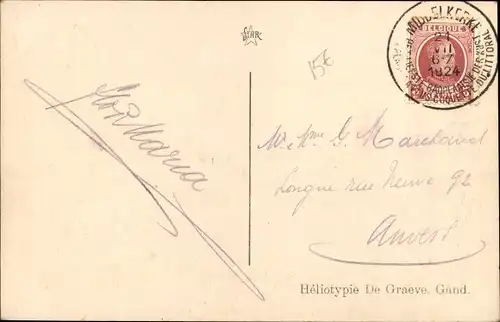 STAR
15€
MIDDELKERKE
BELGIQUE
21
VII
6-7
1924
Maria
Mr & Mme G. Marchand
Longue rue Neuve 92
Anvers
Héliotypie De Graeve, Gand.